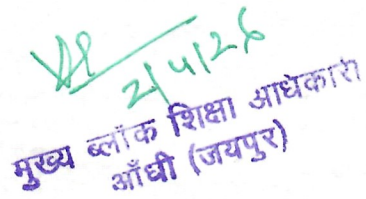 2/4/26
मुख्य ब्लॉक शिक्षा अधिकारी
आँधी (जयपुर)